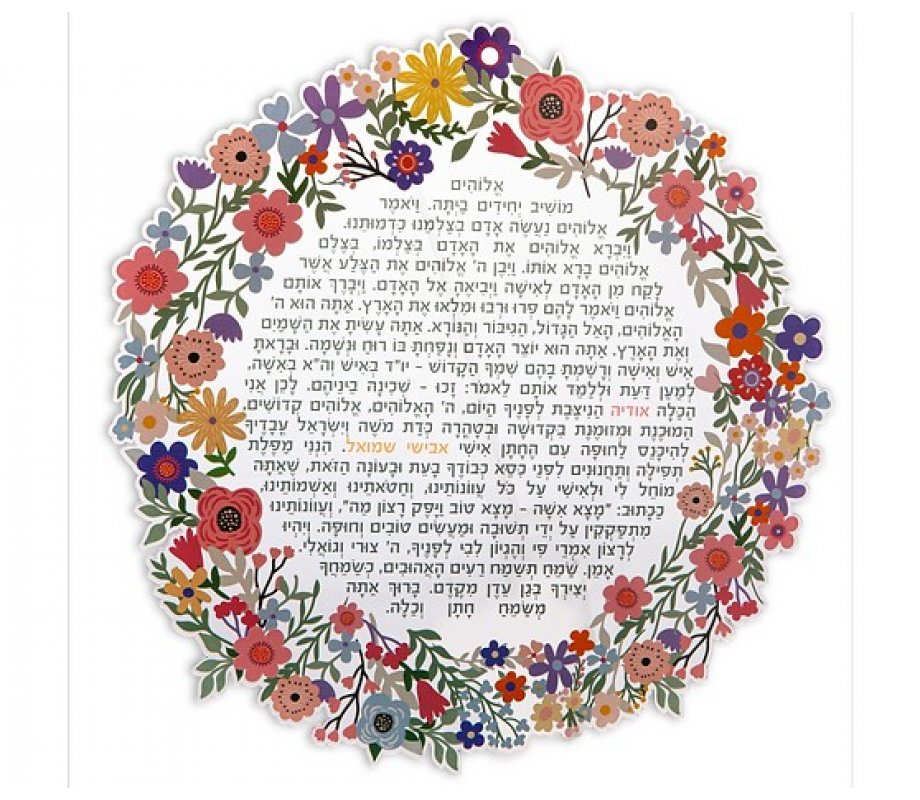 אֱלוֹהִים
מוֹשִׁיב יְחִידִים בַּיְתָה. וַיֹּאמֶר
אֱלוֹהִים נַעֲשֶׂה אָדָם בְּצַלְמֵנוּ כִּדְמוּתֵנוּ.
וַיִּבְרָא אֱלוֹהִים אֶת הָאָדָם בְּצַלְמוֹ, בְּצֶלֶם
אֱלוֹהִים בָּרָא אוֹתוֹ. וַיִּבֶן ה' אֱלוֹהִים אֶת הַצֵּלָע אֲשֶׁר
לָקַח מִן הָאָדָם לְאִישָׁה וַיְבִיאֶהָ אֶל הָאָדָם. וַיְבָרֶךְ אוֹתָם
אֱלוֹהִים וַיֹּאמֶר לָהֶם פְּרוּ וּרְבוּ וּמִלְאוּ אֶת הָאָרֶץ. אַתָּה הוּא ה'
הָאֱלוֹהִים, הָאֵל הַגָּדוֹל, הַגִּיבּוֹר וְהַנּוֹרָא. אַתָּה עָשִׂיתָ אֶת הַשָּׁמַיִם
וְאֶת הָאָרֶץ. אַתָּה הוּא יוֹצֵר הָאָדָם וְנָפַחְתָּ בּוֹ רוּחַ וּנְשָׁמָה. וּבָרָאתָ
אִישׁ וְאִישָׁה וְרָשַׁמְתָּ בָהֶם שִׁמְךָ הַקָּדוֹשׁ - יו"ד בְּאִישׁ וְה"א בְּאִשָּׁה,
לְמַעַן דַּעַת וּלְלַמֵּד אוֹתָם לֵאמֹר: זָכוּ - שְׁכִינָה בֵּינֵיהֶם. לָכֵן אֲנִי
הַכַּלָּה אודיה הַנִּיצֶּבֶת לְפָנֶיךָ הַיּוֹם, ה' הָאֱלוֹהִים, אֱלוֹהִים קְדוֹשִׁים
הַמּוּכֶנֶת וּמְזוּמֶּנֶת בִּקְדוּשָׁה וּבְטָהֳרָה כְּדַת מֹשֶׁה וְיִשְׂרָאֵל עֲבָדֶיךָ
לְהִיכָּנֵס לַחוּפָּה עִם הֶחָתָן אִישִׁי אבישי שמואל. הִנְנִי מַפֶּלֶת
תְּפִילָּה וְתַחֲנוּנִים לִפְנֵי כִּסֵּא כְבוֹדְךָ בָּעֵת וּבָעוֹנָה הַזֹּאת, שֶׁאַתָּה
מוֹחֵל לִי וּלְאִישִׁי עַל כֹּל עֲווֹנוֹתֵינוּ, וְחַטֹּאתֵינוּ וְאַשְׁמוֹתֵינוּ,
כַּכָּתוּב: "מָצָא אִשָּׁה - מָצָא טוֹב וַיָּפֶק רָצוֹן מֵה'", וַעֲווֹנוֹתֵינוּ
מִתְפַּקְּקִין עַל יְדֵי תְּשׁוּבָה וּמַעֲשִׂים טוֹבִים וְחוּפָּה. וְיִהְיוּ
לְרָצוֹן אִמְרֵי פִי וְהֶגְיוֹן לִבִּי לְפָנֶיךָ, ה' צוּרִי וְגוֹאֲלִי.
אָמֵן. שַׂמֵּחַ תְּשַׂמַּח רֵעִים הָאֲהוּבִים, כְּשַׂמֵּחֲךָ
יְצִירְךָ בְּגַן עֵדֶן מִקֶּדֶם. בָּרוּךְ אַתָּה
מְשַׂמֵּחַ חָתָן וְכַלָּה.